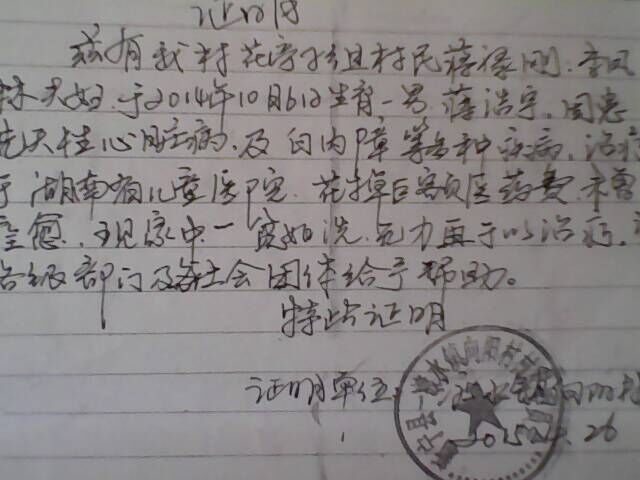 证明
兹有我村花亭子组村民蒋禄刚、李凤
林夫妇,于2014年10月6日生育一男蒋浩宇,因患
先天性心脏病,及白内障等多种疾病,治疗
于湖南省儿童医院,花掉巨额医药费,未曾
全愈,现家中一贫如洗,无力再于以治疗,
各级部门及社会团体给予帮助。
特此证明
证明单位:
26